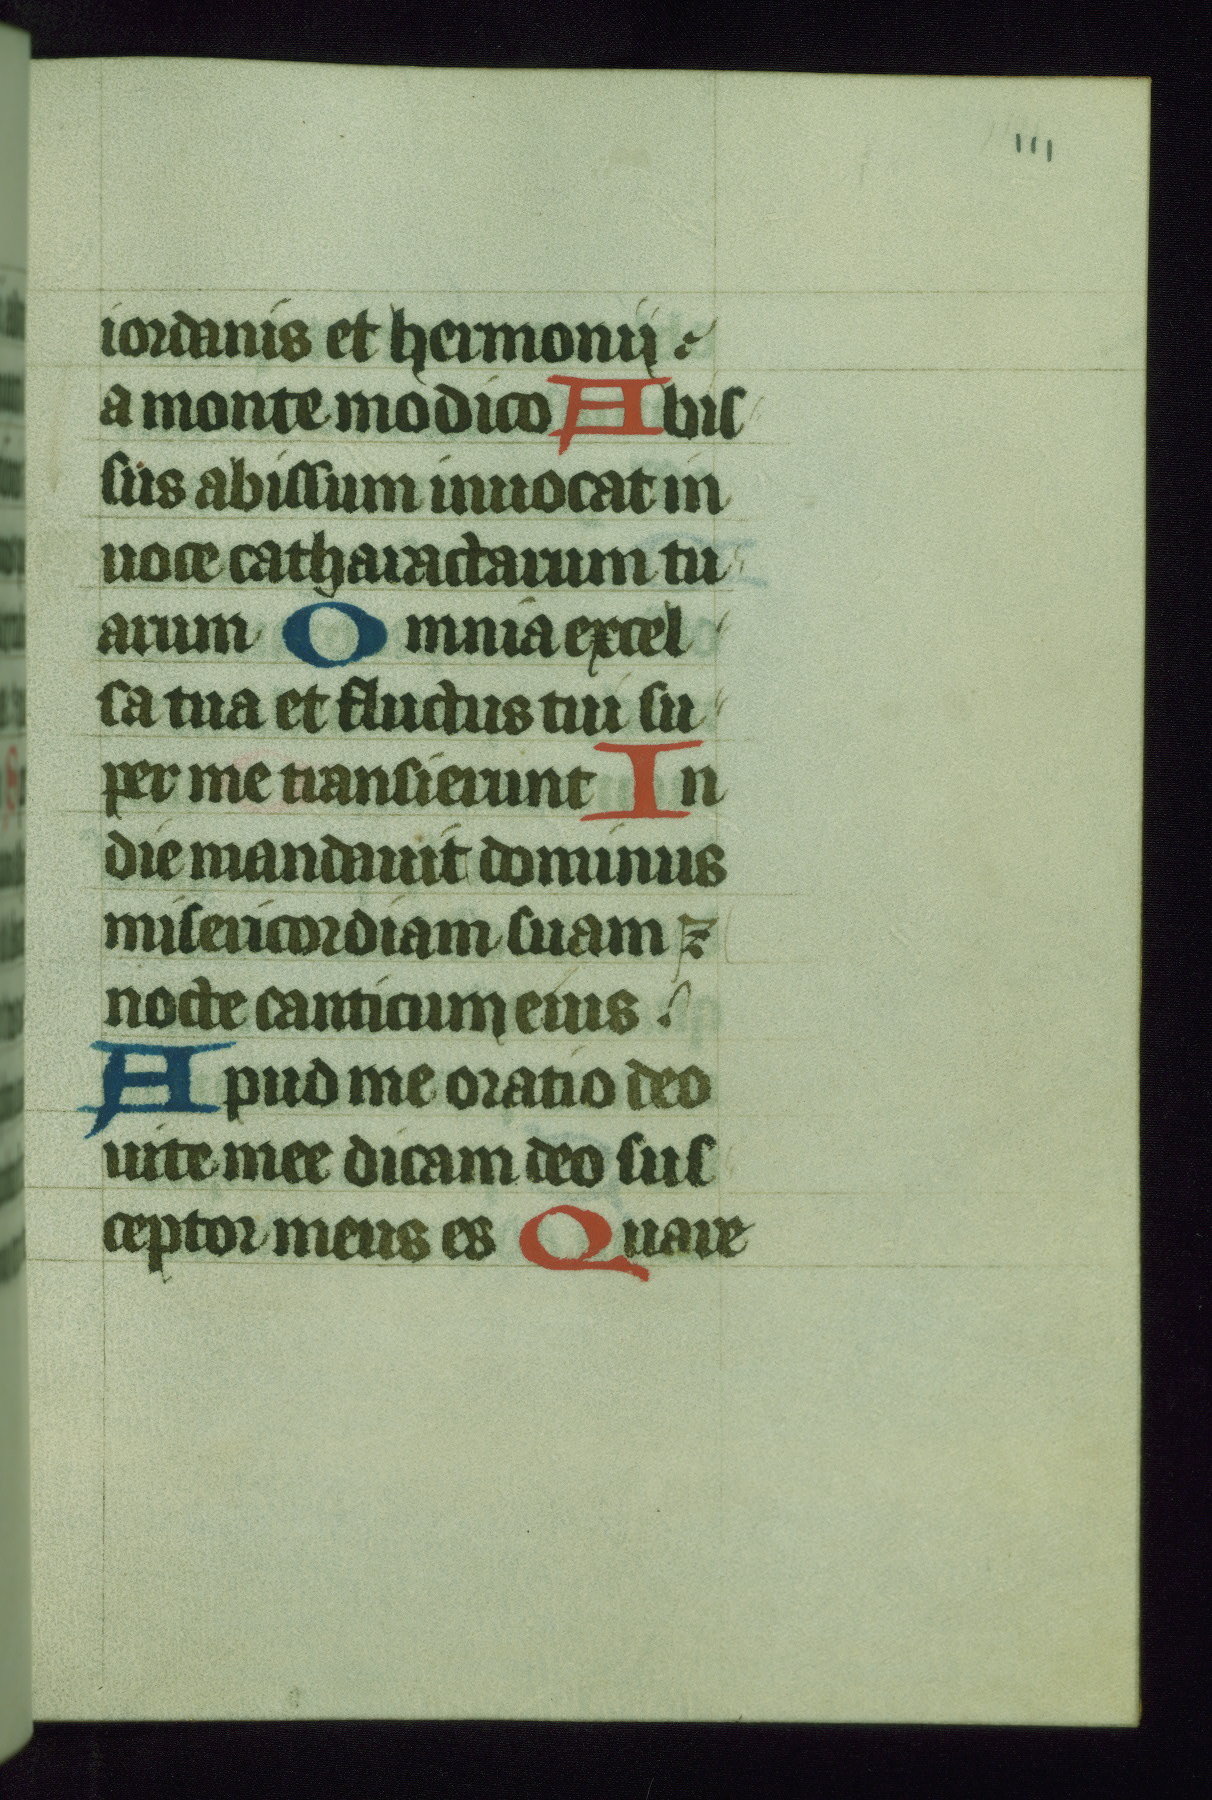 111
iordanis et hermonij :
a monte modico Abis
sus abissum inuocat in
uoce catharactarum tu
arum Omnia excel
sa tua et fluctus tui su
per me transierunt In
die mandauit dominus
misericordiam suam ⁊
nocte canticum eius :
Apud me oratio deo
uite mee dicam deo sus
ceptor meus es Quare